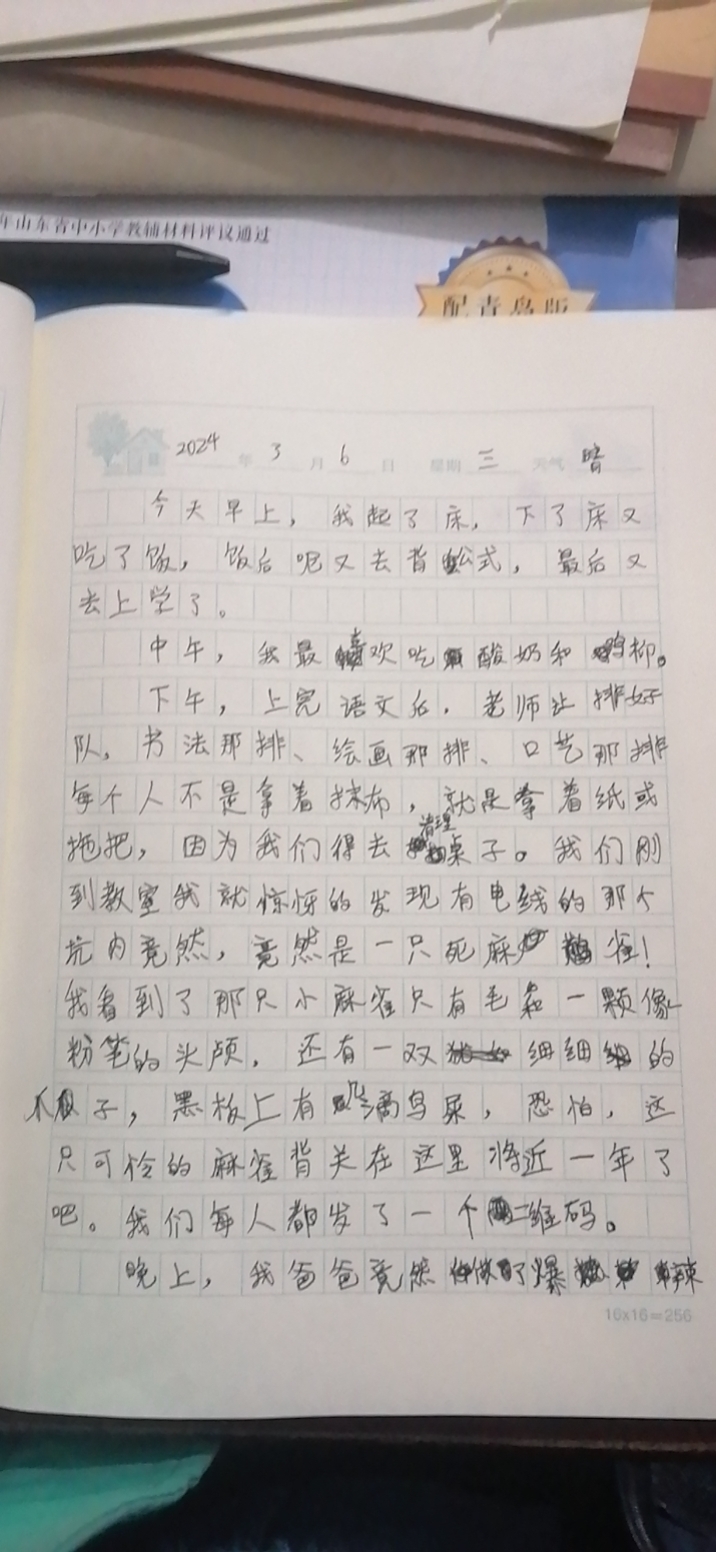 年山东省中小学教辅材料评议通过
配青岛版
2024 年 3 月 6 日 星期 三 天气 晴
今天早上，我起了床，下了床又
吃了饭，饭后呢又去背公式，最后又
去上学了。
中午，我最喜欢吃酸奶和鸡柳。
下午，上完语文后，老师让排好
队，书法那排、绘画那排、口艺那排
每个人不是拿着抹布，就是拿着纸或
拖把，因为我们得去清理桌子。我们刚
到教室我就惊讶的发现有电线的那个
坑内竟然，竟然是一只死麻雀！
我看到了那只小麻雀只有毛和一颗像
粉笔的头颅，还有一双细细的
爪子，黑板上有几滴鸟屎，恐怕，这
只可怜的麻雀背关在这里将近一年了
吧。我们每人都发了一个二维码。
晚上，我爸爸竟然做了爆辣
16x16=256